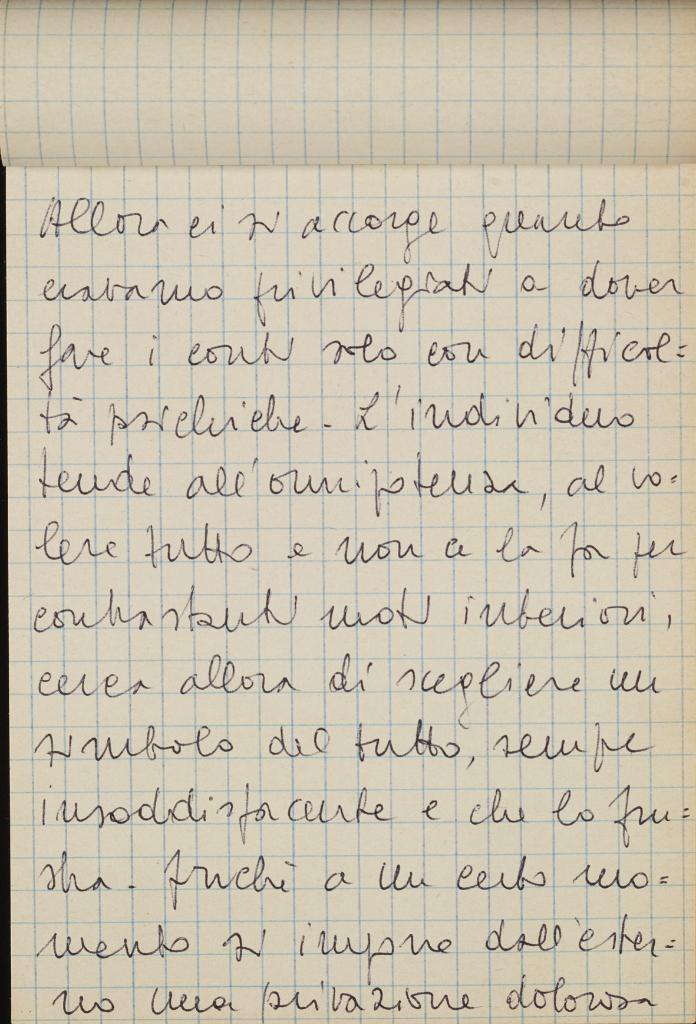 Allora ci si accorge quanto
eravamo privilegiati a dover
fare i conti solo con difficol=
tà psichiche. L'individuo
tende all'onnipotenza, al vo=
lere tutto e non ce la fa per
contrastanti moti interiori,
cerca allora di scegliere un
simbolo del tutto, sempre
insoddisfacente e che lo fru=
stra. Finché a un certo mo=
mento si impone dall'ester=
no una privazione dolorosa